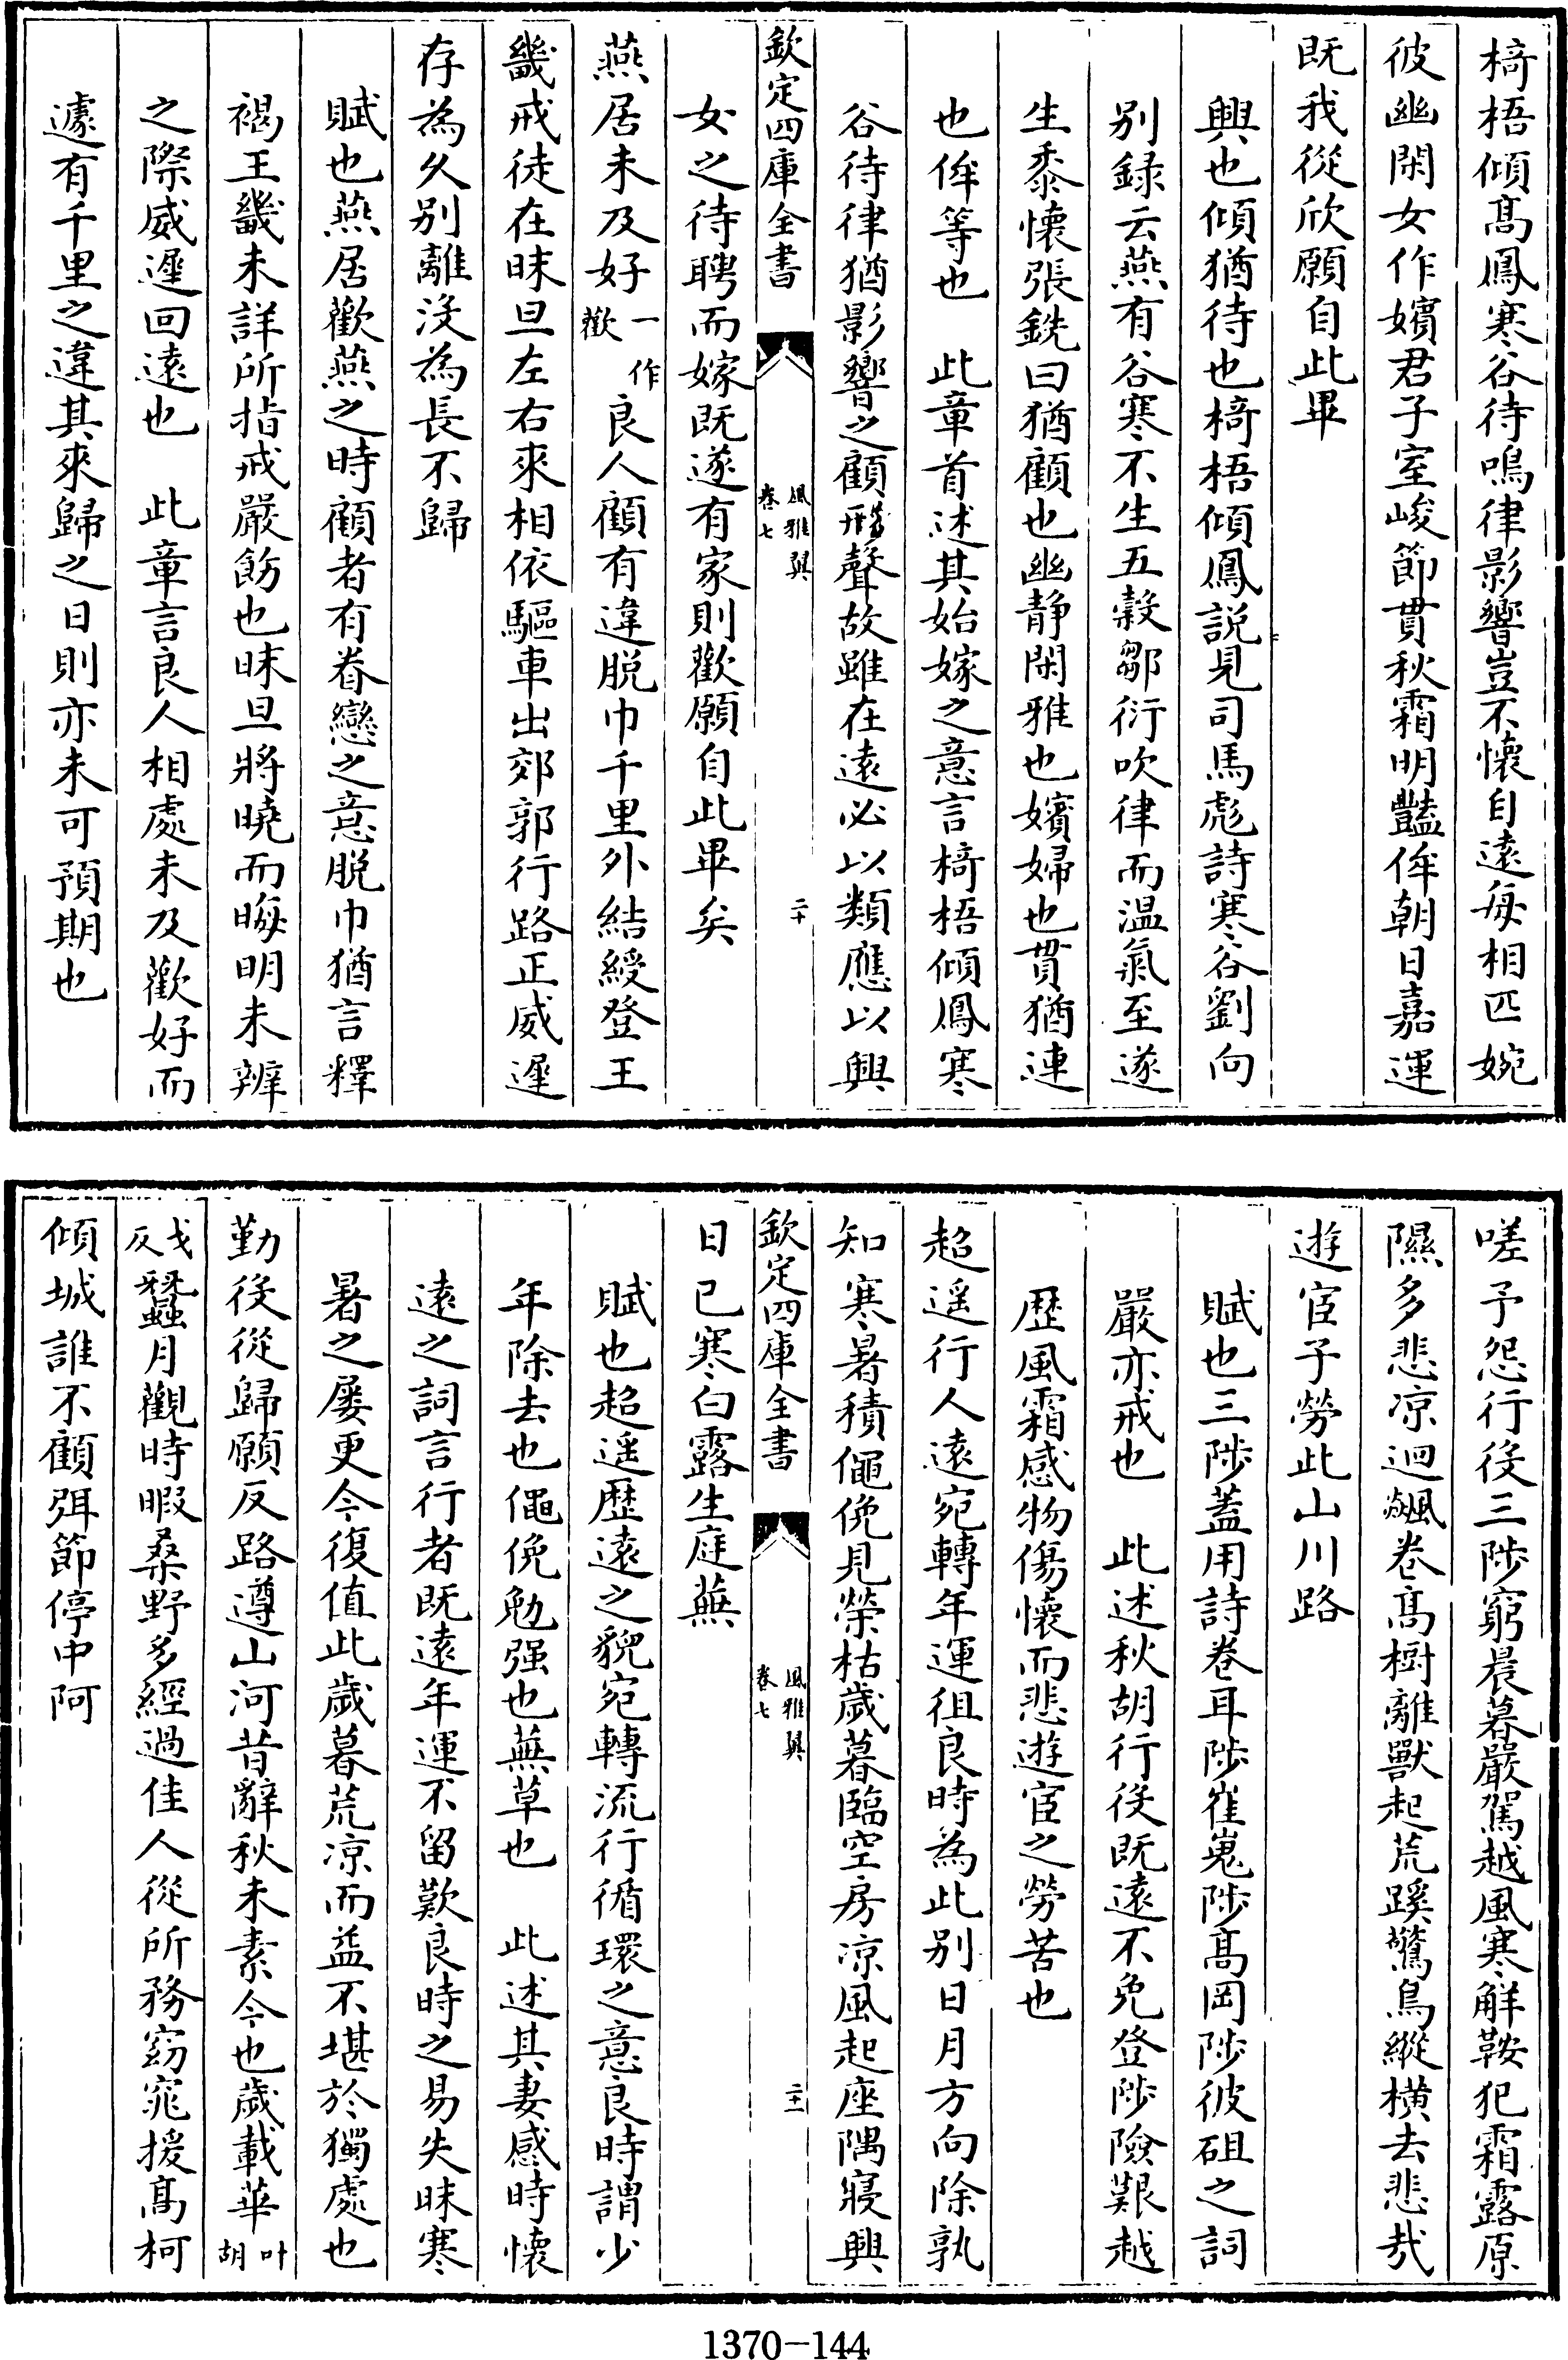 椅梧傾髙鳳寒谷待鳴律影響豈不懷自遠每相匹婉
彼幽閑女作嬪君子室峻節貫秋霜明豔侔朝日嘉運
既我從欣願自此畢
興也傾猶待也椅梧傾鳳説見司馬彪詩寒谷劉向
别録云燕有谷寒不生五榖鄒衍吹律而温氣至遂
生黍懷張銑曰猶顧也幽静閑雅也嬪婦也貫猶連
也侔等也　此章首述其始嫁之意言椅梧傾鳳寒
谷待律猶影響之顧形聲故雖在遠必以類應以興
欽定四庫全書　風雅翼　卷七　二十
女之待聘而嫁既遂有家則歡願自此畢矣
燕居未及好一作歡良人顧有違脱巾千里外結綬登王
畿戒徒在昧旦左右來相依驅車出郊郭行路正威遲
存為久别離没為長不歸
賦也燕居歡燕之時顧者有眷戀之意脱巾猶言釋
褐王畿未詳所指戒嚴飭也昧旦將曉而晦明未辨
之際威遲回遠也　此章言良人相處未及歡好而
遽有千里之違其來歸之日則亦未可預期也
嗟予怨行役三陟窮晨暮嚴駕越風寒解鞍犯霜露原
隰多悲凉迴飈卷髙樹離獸起荒蹊驚鳥縱横去悲哉
遊宦子勞此山川路
賦也三陟蓋用詩卷耳陟崔嵬陟髙岡陟彼砠之詞
嚴亦戒也　此述秋胡行役既遠不免登陟險艱越
歴風霜感物傷懷而悲遊宦之勞苦也
超遥行人遠宛轉年運徂良時為此别日月方向除孰
知寒暑積僶俛見榮枯歲暮臨空房凉風起座隅寢興
欽定四庫全書　風雅翼　卷七　二十一
日已寒白露生庭蕪
賦也超遥歴遠之貌宛轉流行循環之意良時謂少
年除去也僶俛勉强也蕪草也　此述其妻感時懷
遠之詞言行者既遠年運不留歎良時之易失昧寒
暑之屡更今復值此歲暮荒凉而益不堪於獨處也
勤役從歸願反路遵山河昔辭秋未素今也歲載華叶胡
戈反蠶月觀時暇桑野多經過佳人從所務窈窕援髙柯
傾城誰不顧弭節停中阿
1370-144